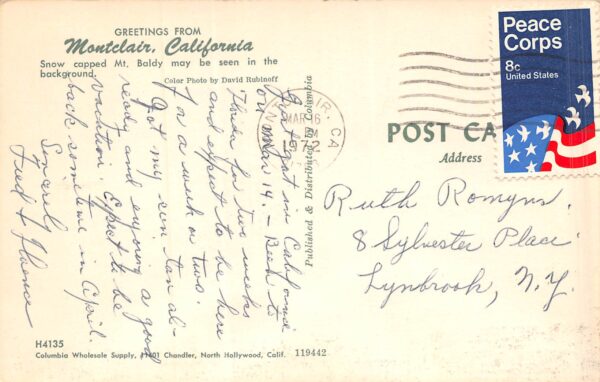 GREETINGS FROM
Montclair, California
Snow capped Mt. Baldy may be seen in the
background.
Color Photo by David Rubinoff
Just got in California
on Mar. 14. - Been to
Florida for two weeks
and expect to be here
for a week or two.
Got my sun tan al-
ready and enjoying a good
vacation. Expect to be
back sometime in April.
Sincerely
Fred & Florence
H4135
Columbia Wholesale Supply, 11401 Chandler, North Hollywood, Calif.
119442
Published & Distributed by Columbia
MONTCLAIR, CA
MAR 16
1972
Peace
Corps
8c
United States
POST CA
Address
Ruth Romyns.
8 Sylvester Place
Lynbrook, N.Y.